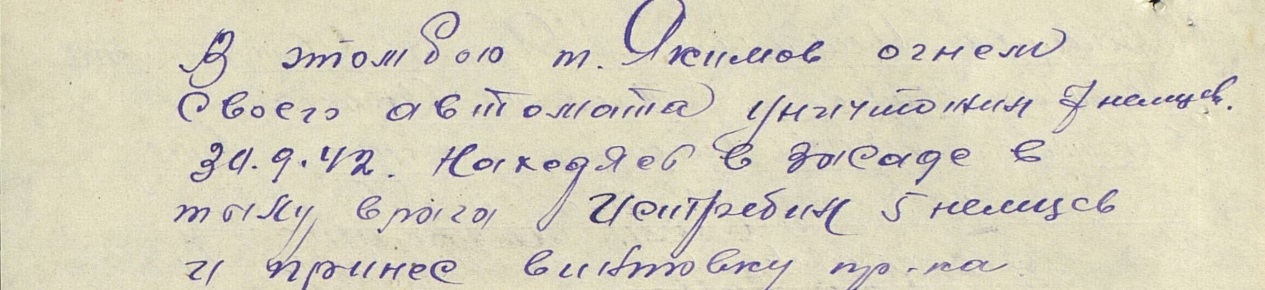 В этом бою т. Якимов огнем
своего автомата уничтожил 7 немцев.
30.9.42. Находясь в засаде в
тылу врага Истребил 5 немцев
и принес винтовку пр-ка